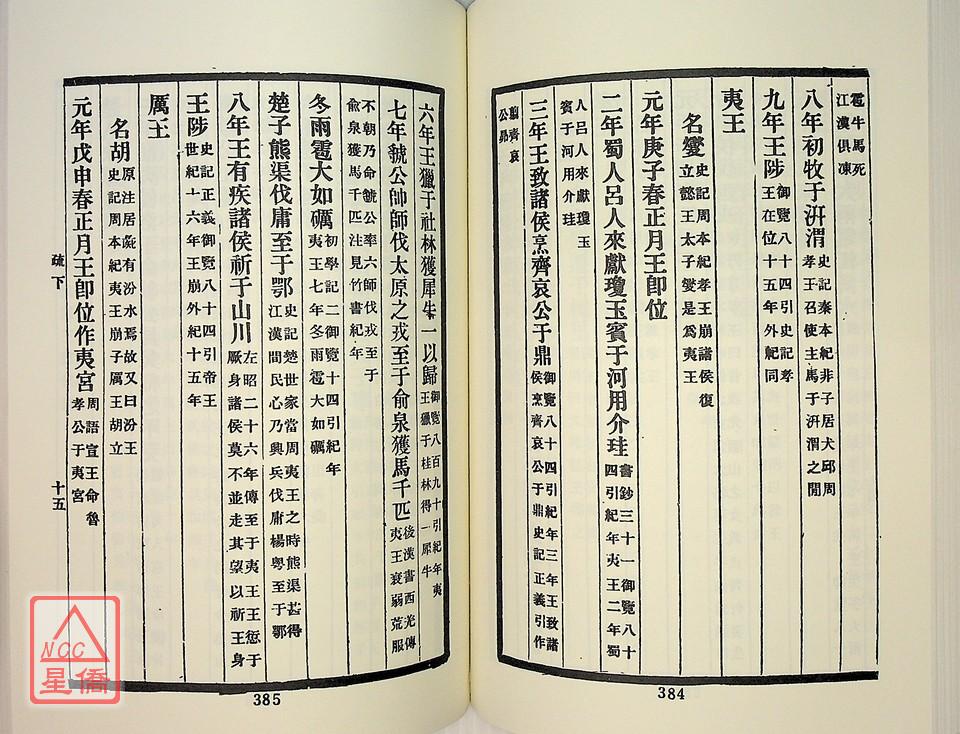 雹牛馬死
江漢俱凍
八年初牧于汧渭史記秦本紀非子居犬邱周
孝王召使主馬于汧渭之閒
九年王陟御覽八十四引史記孝
王在位十五年外紀同
夷王
名燮史記周本紀孝王崩諸侯復
立懿王太子燮是為夷王
元年庚子春正月王即位
二年蜀人呂人來獻瓊玉賓于河用介珪書鈔三十一御覽八十
四引紀年夷王二年蜀
人呂人來獻瓊玉
賓于河用介珪
三年王致諸侯烹齊哀公于鼎御覽八十四引紀年三年王致諸
侯烹齊哀公于鼎史記正義引作
翦齊哀
公昴
384
六年王獵于社林獲犀牛一以歸御覽八百九十引紀年夷
王獵于桂林得一犀牛
七年虢公帥師伐太原之戎至于俞泉獲馬千匹後漢書西羌傳
夷王衰弱荒服
不朝乃命虢公率六師伐戎至于
俞泉獲馬千匹注見竹書紀年
冬雨雹大如礪初學記二御覽十四引紀年
夷王七年冬雨雹大如礪
楚子熊渠伐庸至于鄂史記楚世家當周夷王之時熊渠甚得
江漢間民心乃興兵伐庸楊粵至于鄂
八年王有疾諸侯祈于山川左昭二十六年傳至于夷王王愆于
厥身諸侯莫不並走其望以祈王身
王陟史記正義御覽八十四引帝王
世紀十六年王崩外紀十五年
厲王
名胡原注居彘有汾水焉故又曰汾王
史記周本紀夷王崩子厲王胡立
元年戊申春正月王即位作夷宮周語宣王命魯
孝公于夷宮
疏下
十五
385
NCC
星僑